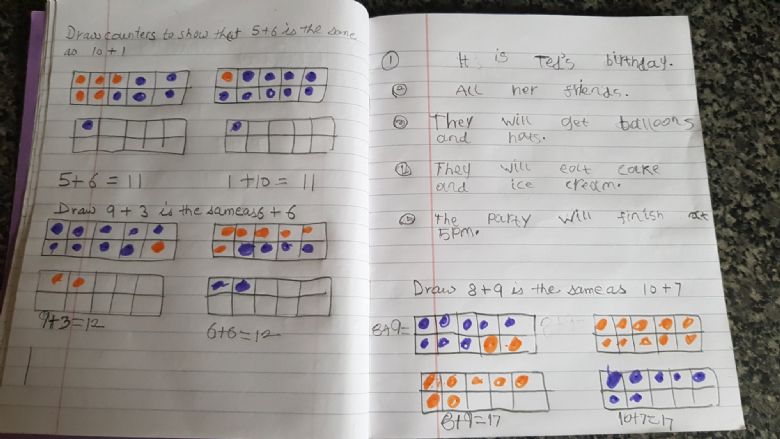 Draw counters to show that 5+6 is the same
as 10+1
5+6=11
1+10=11
Draw 9+3 is the same as 6+6
9+3=12
6+6=12
1 It is Ted's birthday.
All her friends.
They will get balloons
and hats.
They will eat cake
and ice cream.
The party will finish at
5pm.
Draw 8+9 is the same as 10+7
8+9=
8+9=17
10+7=17